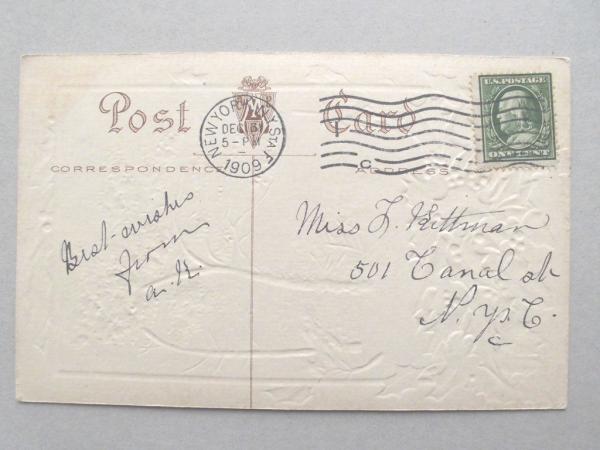 Post Card
NEW YORK, N.Y. STA. F
DEC 31
5-PM
1909
U.S. POSTAGE
ONE CENT
CORRESPONDENCE
ADDRESS
C
Best-wishes
from
a. K.
Miss F. Kittman
501 Canal st
N. Y. C.
C